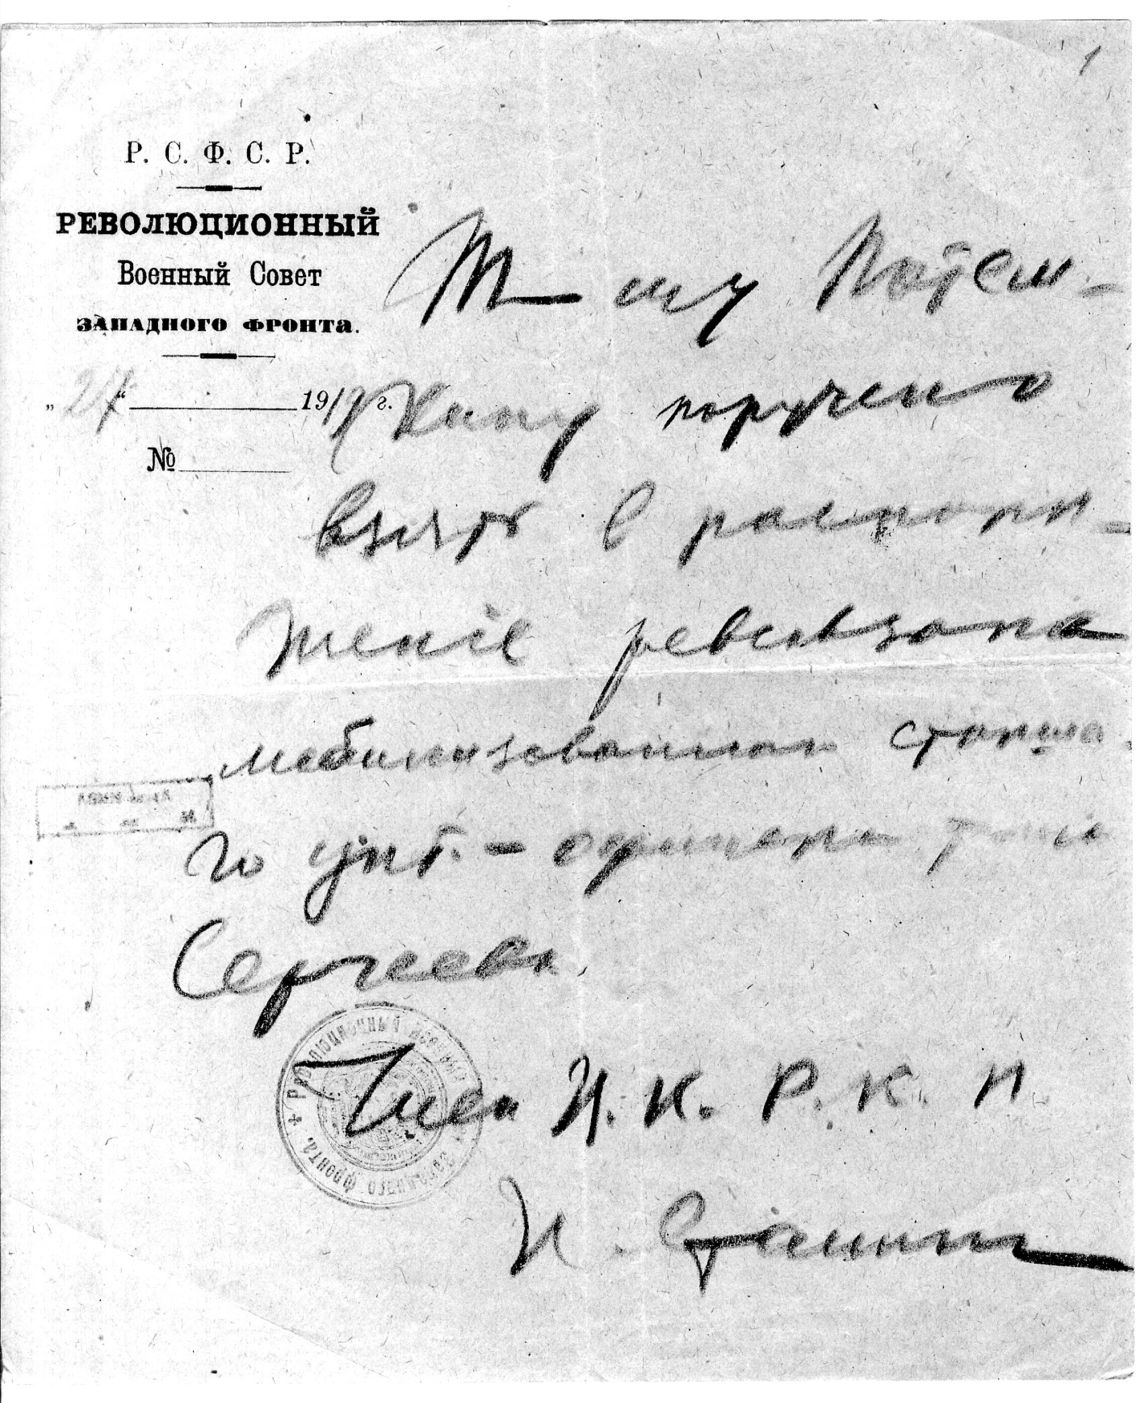 1
Р. С. Ф. С. Р.
РЕВОЛЮЦИОННЫЙ
Военный Совет
ЗАПАДНОГО ФРОНТА.
„27“ 1919 г.
№
Т—щу Потем-
кину поручено
взять в распоря-
жение
мобилизованнаго старша-
го унт.-офицера
Сергеева.
Член Ц. К. Р. К. П.
И. Сталин
РЕВОЛЮЦИОННЫЙ ВОЕННЫЙ СОВЕТ ЗАПАДНОГО ФРОНТА